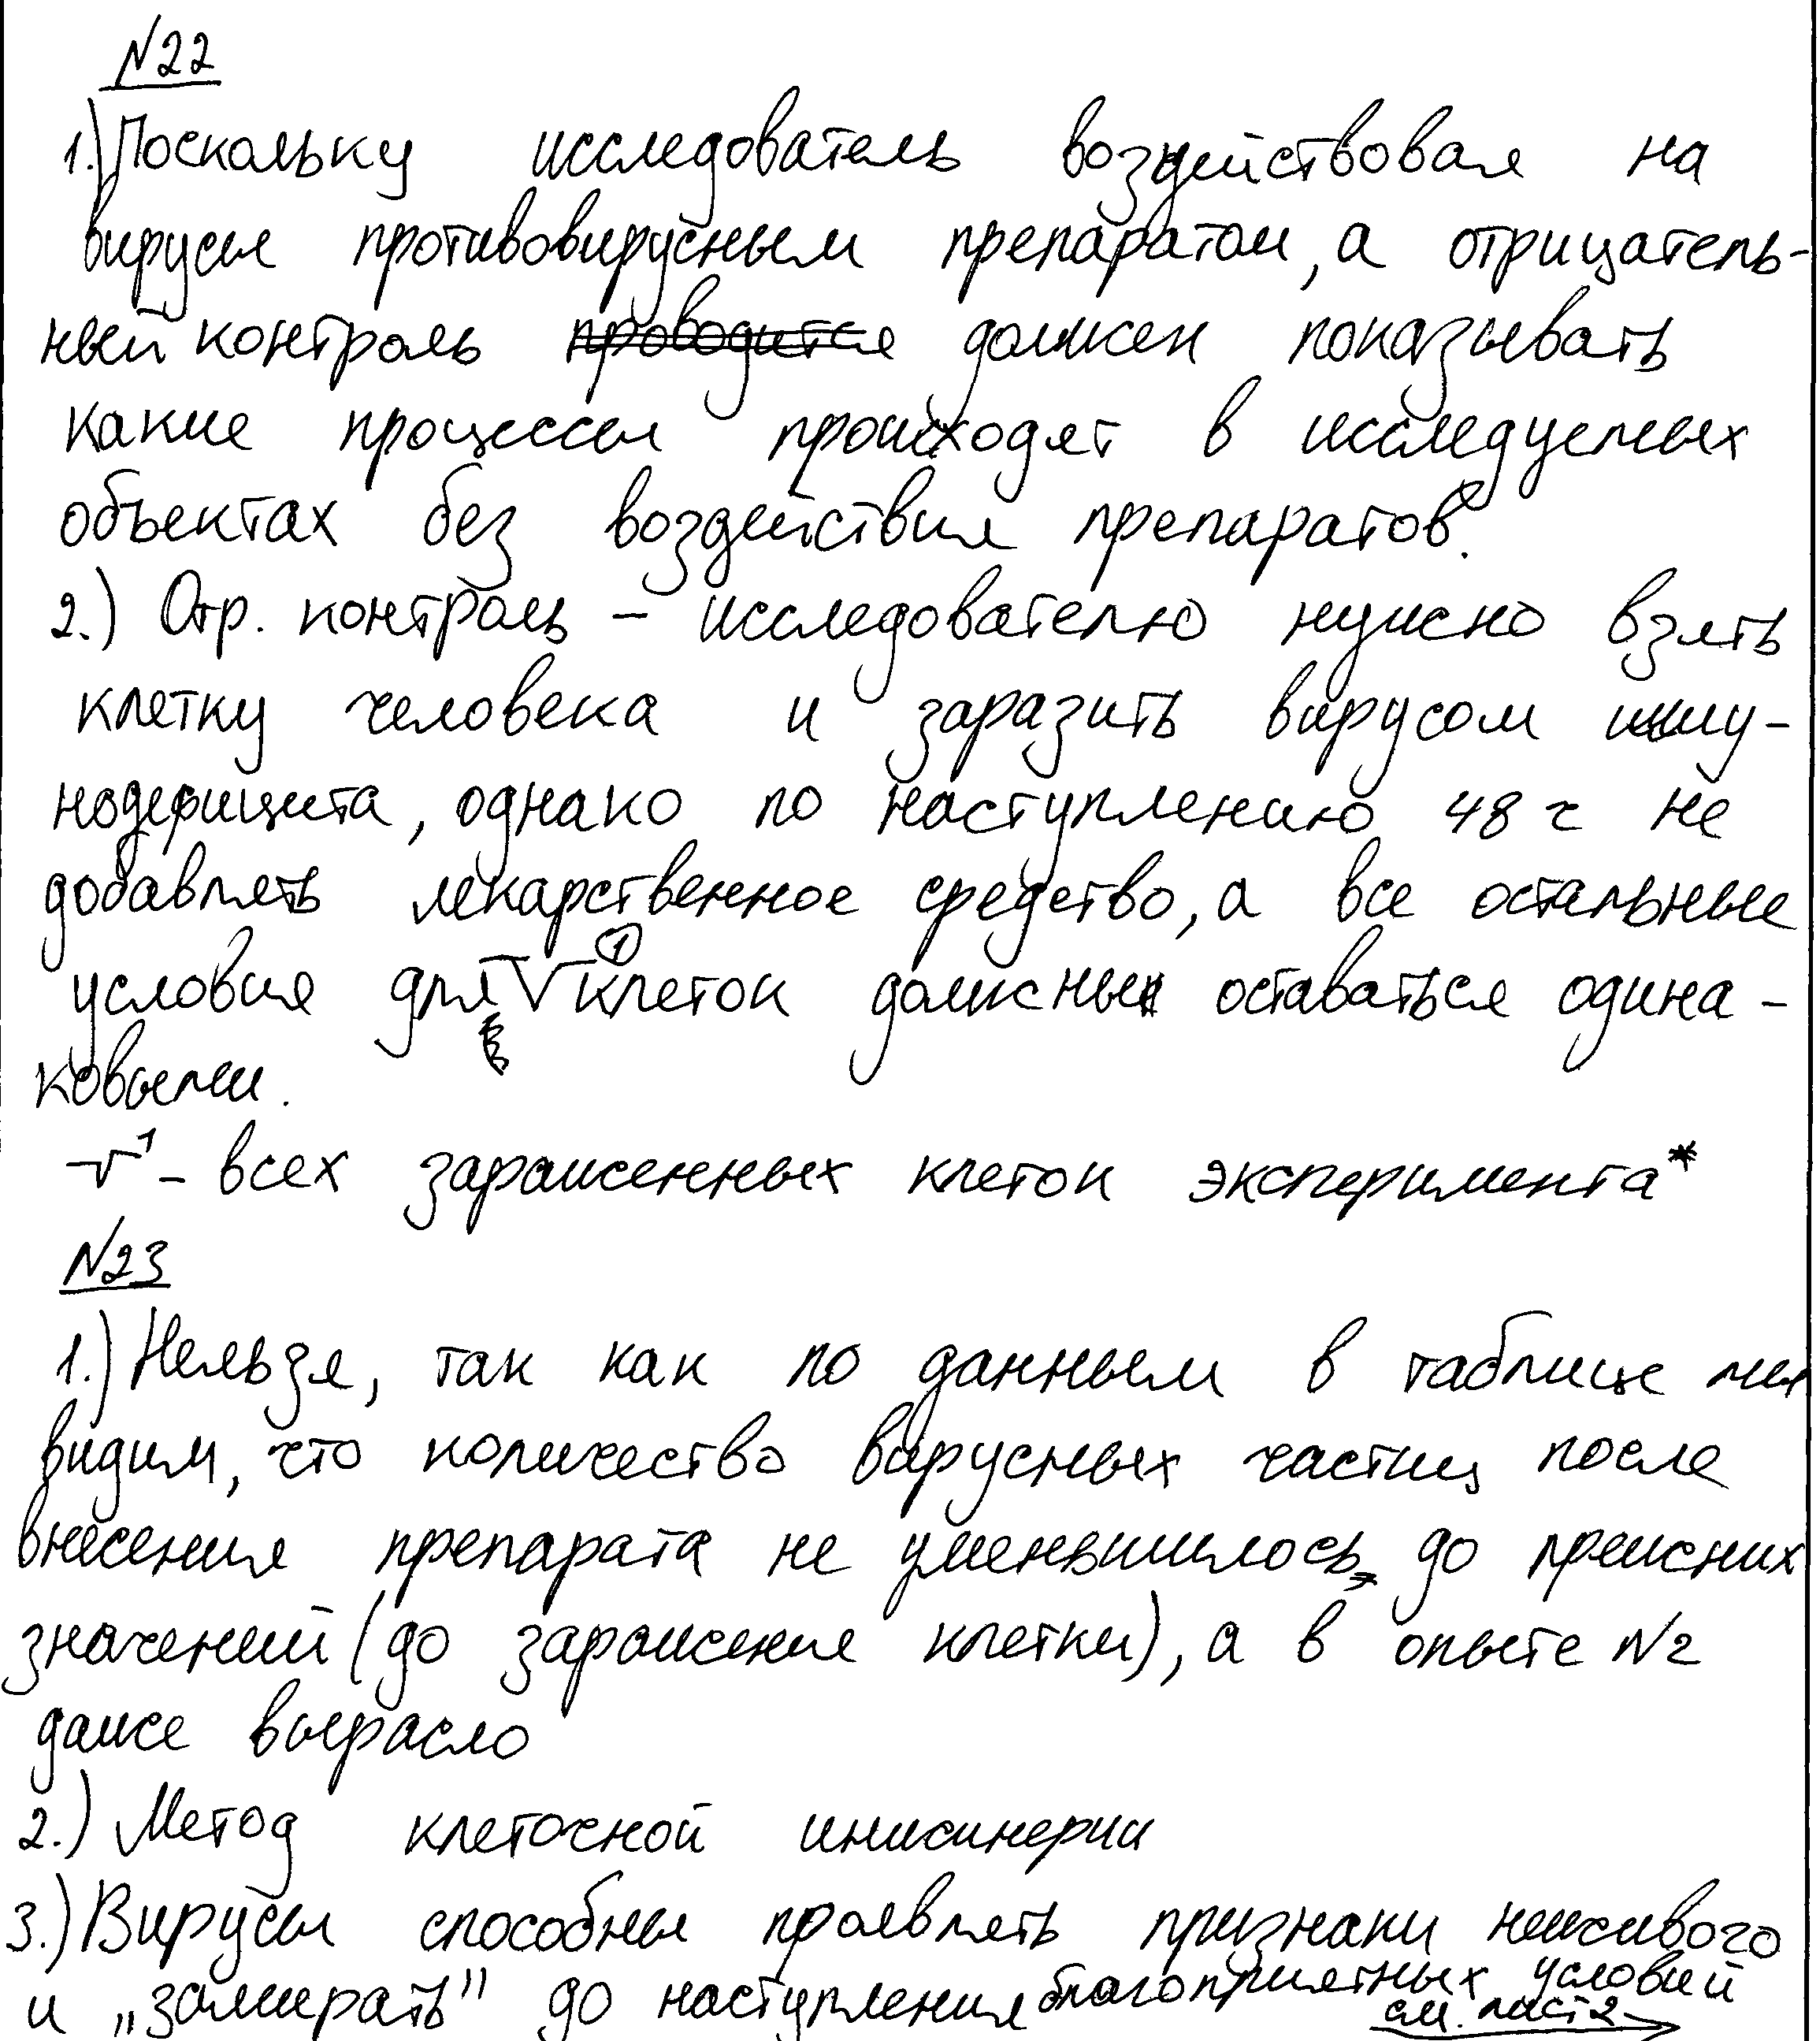 №22
1.) Поскольку исследователь воздействовал на
вирусы противовирусным препаратом, а отрицатель-
ный контроль проводится должен показывать
какие процессы происходят в исследуемых
объектах без воздействия препаратов.
2.) Отр. контроль – исследователю нужно взять
клетку человека и заразить вирусом имму-
нодефицита, однако по наступлению 48 ч не
добавлять лекарственное средство, а все остальные
условия для √① клеток должны оставаться одина-
ковыми.
√¹ – всех зараженных клеток эксперимента*
№23
1.) Нельзя, так как по данным в таблице мы
видим, что количество вирусных частиц после
внесения препарата не уменьшилось до прежних
значений (до заражения клетки), а в опыте №2
даже выросло
2.) Метод клеточной инженерии
3.) Вирусы способны проявлять признаки неживого
и „замирать" до наступления благоприятных условий
см. лист 2 →